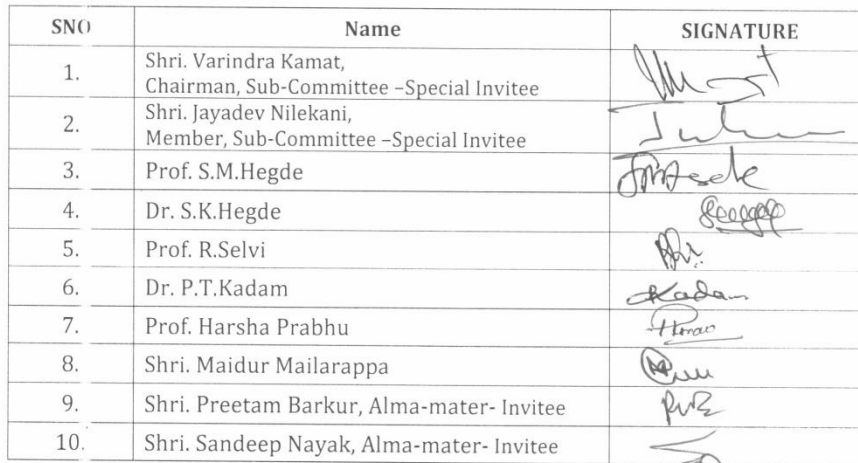 SNO Name SIGNATURE
1. Shri. Varindra Kamat,
Chairman, Sub-Committee –Special Invitee
2. Shri. Jayadev Nilekani,
Member, Sub-Committee –Special Invitee
3. Prof. S.M.Hegde
4. Dr. S.K.Hegde
5. Prof. R.Selvi
6. Dr. P.T.Kadam Kadam
7. Prof. Harsha Prabhu
8. Shri. Maidur Mailarappa
9. Shri. Preetam Barkur, Alma-mater- Invitee
10. Shri. Sandeep Nayak, Alma-mater- Invitee